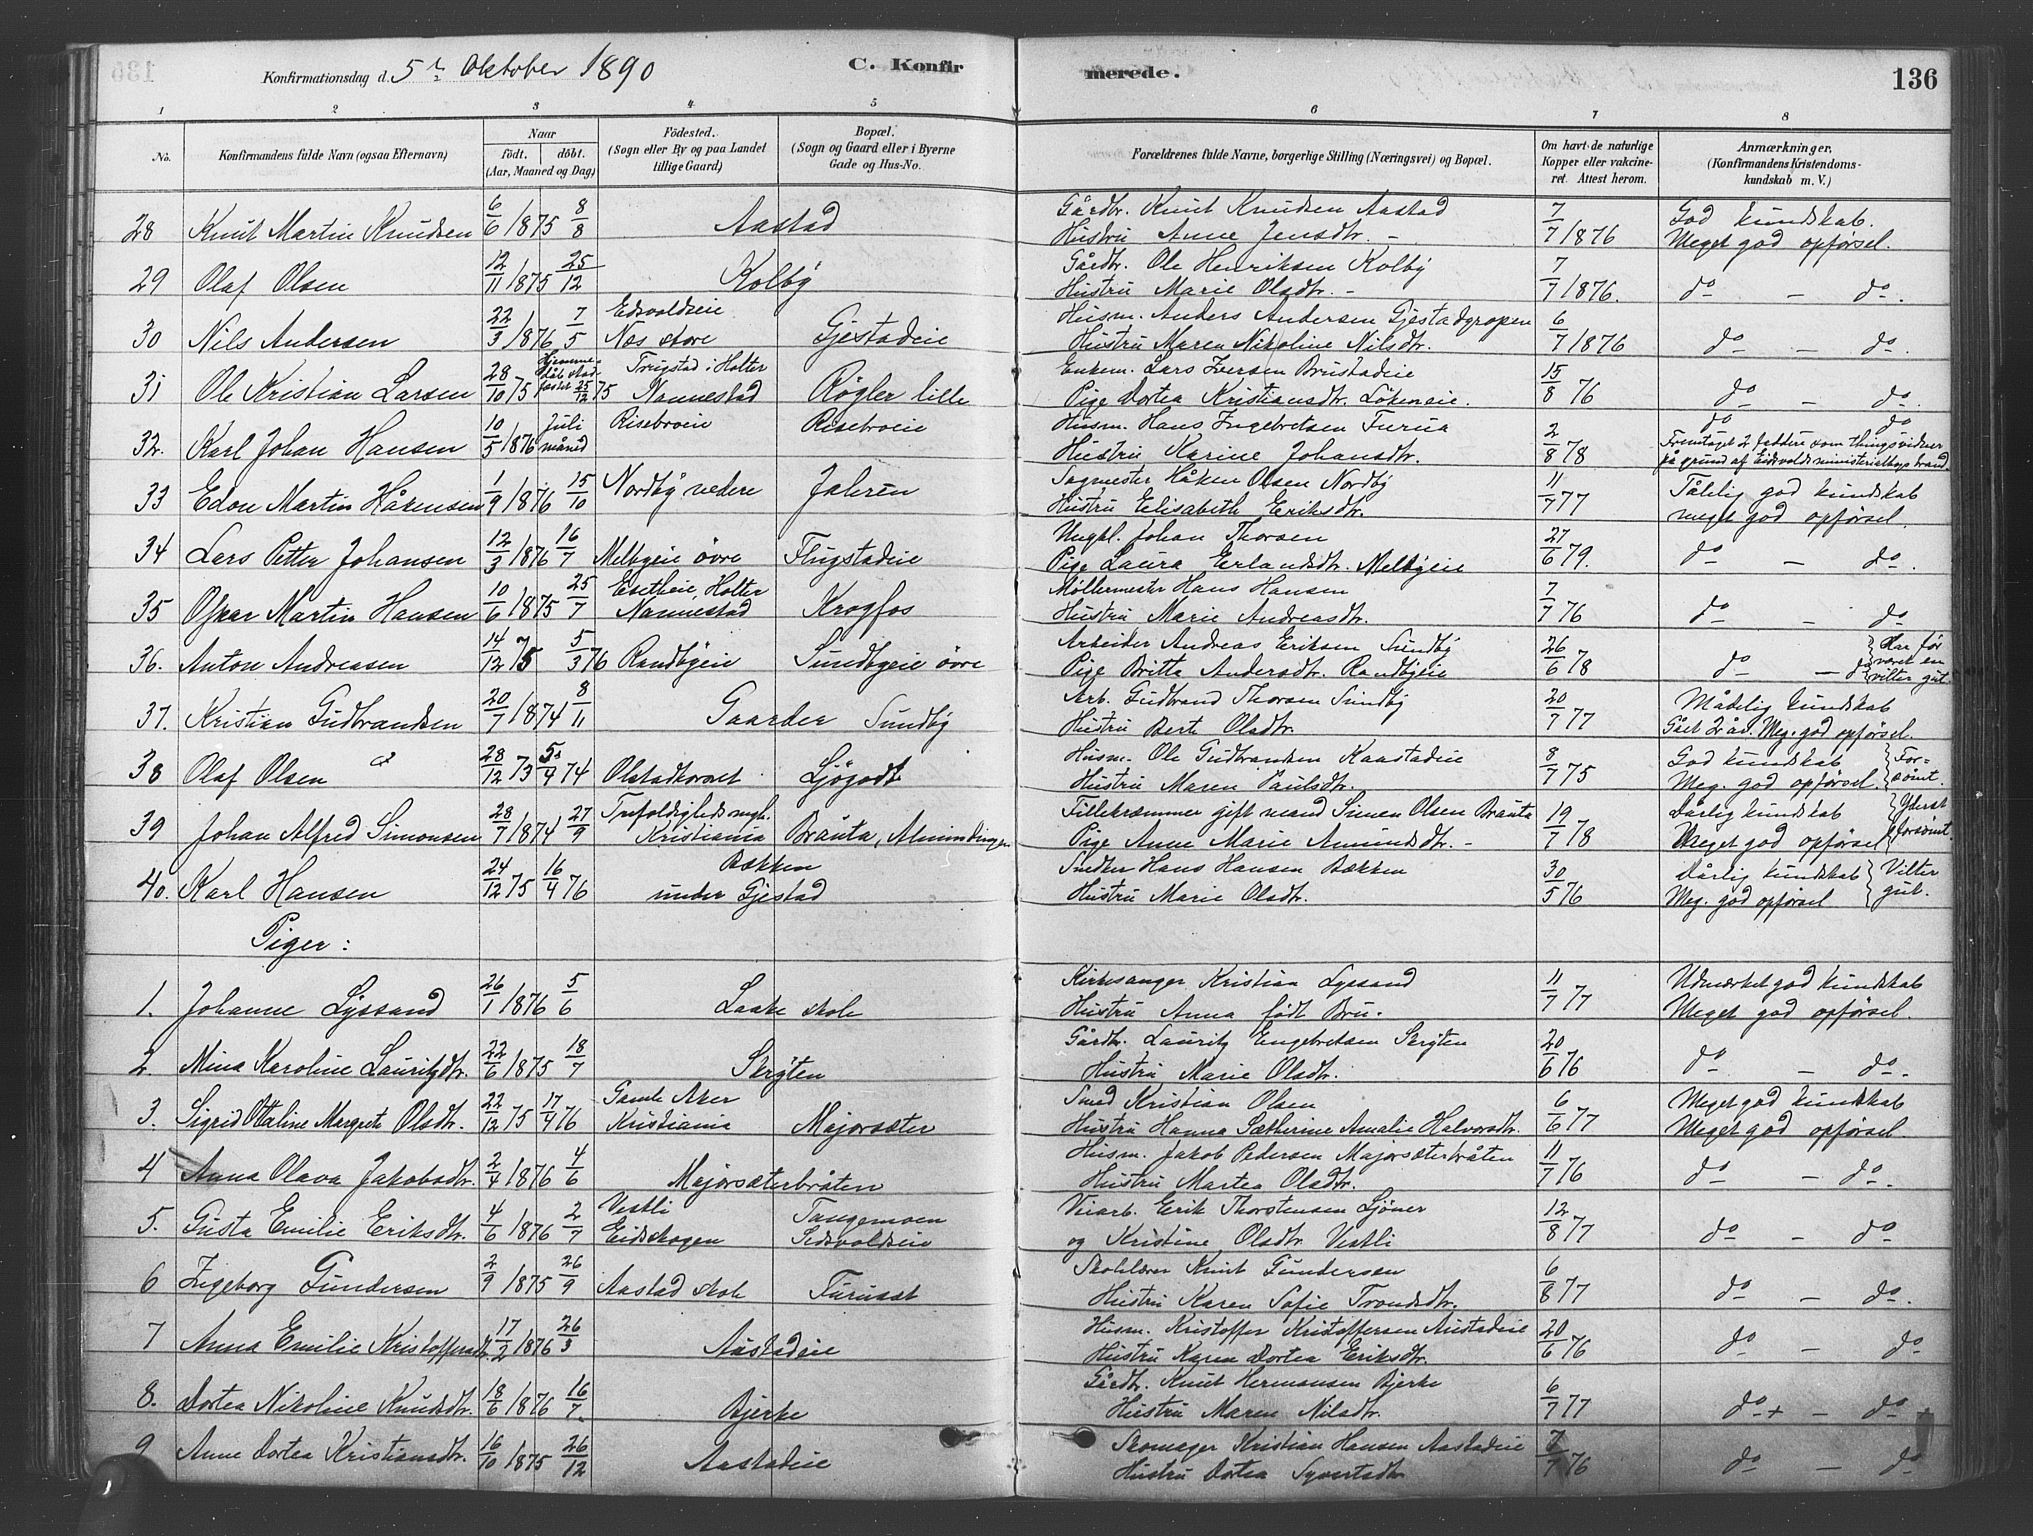 Konfirmationsdag d. 5te Oktober 1890 C. Konfirmerede. 136
1 2 3 4 5 6 7 8
No. Konfirmandens fulde Navn (ogsaa Efternavn) Naar født. døbt. (Aar, Maaned og Dag) Fødested. (Sogn eller By og paa Landet tillige Gaard) Bopæl. (Sogn og Gaard eller i Byerne Gade og Hus-No. Forældrenes fulde Navne, borgerlige Stilling (Næringsvei) og Bopæl. Om havt de naturlige Kopper eller vakcineret. Attest herom. Anmærkninger, (Konfirmandens Kristendomskundskab m. V.)
28 Knut Martin Knudsen 6/6 1875 8/8 Aastad Gårdbr. Knut Knudsen Aastad 7/7 1876 God kundskab.
Hustru Anne Jensdtr. - Meget god opførsel.
29 Olaf Olsen 12/11 1875 25/12 Kolby Gårdbr. Ole Henriksen Kolby 7/7 1876.
Hustru Marie Olsdtr. - do - do.
30 Nils Andersen 22/3 1876 7/5 Edsvoldseie Næs store Gjestadeie Husm. Anders Andersen Gjestadgropen 6/7 1876
Hustru Maren Nikoline Nilsdtr. do - do.
31 Ole Kristian Larsen 28/10 75 Hjemmedåb stadfæstet 25/12 75 Trugstad i Holter Nannestad Røgler lille Enkem. Lars Iversen Brustadeie 15/8 76
Pige Dortea Kristiansdtr. Løkeneie. do - do.
32. Karl Johan Hansen 10/5 1876 Juli måned Risebroeie Risebroeie Husm. Hans Ingebretsen Furua 2/8 78 do do
Hustru Karine Johansdtr. Fremtaget 2 faddere som thingsvidner på grund af Eidsvolds ministerialbogs brand
33 Edon Martin Håkensen 1/9 1876 15/10 Nordby nedre Jaleren Sagmester Håken Olsen Nordby 11/7 77 Tålelig god kundskab
Hustru Elisabeth Eriksdtr. meget god opførsel.
34 Lars Petter Johansen 12/3 1876 16/7 Melbyeie øvre Flugstadeie Ungkl. Johan Thorsen 27/6 79.
Pige Laura Erlandsdtr. Melbyeie do - do.
35 Oskar Martin Hansen 10/6 1875 25/7 Holter Nannestad Krogfos Møllermester Hans Hansen 7/7 76
Hustru Marie Andreasdtr. do - do
36. Anton Andreasen 14/12 75 5/3 76 Randbyeie Sundbyeie øvre Arbeider Andreas Eriksen Sundby 26/6 78
Pige Britta Andersdtr. Randbyeie do - do Har før været en vilter gut.
37. Kristian Gudbrandsen 20/7 1874 8/11 Gaarder Sundby Arb. Gudbrand Thorsen Sundby 20/7 77 Mådelig kundskab
Hustru Berte Olsdtr. Gået 2 år. Meg. god opførsel.
38 Olaf Olsen 28/12 73 5/4 74 Olstadkorset Sjøgodt Husm. Ole Gudbrandsen Kaastadeie 8/7 75 God kundskab
Hustru Maren Paulsdtr. Meg. god opførsel. Forsømt.
39 Johan Alfred Simonsen 28/7 1874 27/9 Trefoldighedsmgh. Kristiania Bråuta, Almindingen Tillekræmmer gift mand Simen Olsen Bråuta 19/7 78 Dårlig kundskab
Pige Anne Marie Amundsdtr. - Meget god opførsel Yderst forsømt.
40. Karl Hansen 24/12 75 16/4 76 Bækken under Gjestad Snedker Hans Hansen Bækken 30/5 76 Dårlig kundskab
Hustru Marie Olsdtr. Meg. god opførsel. Vilter gut.
Piger:
1. Johanne Lyssand 26/1 1876 5/6 Laake skole Kirkesanger Kristian Lyssand 11/7 77 Udmærket god kundskab
Hustru Anna født Bru. Meget god opførsel.
2. Mina Karoline Lauritzdtr. 22/6 1875 18/7 Skryten Gårdbr. Lauritz Engebretsen Skryten 20/6 76
Hustru Marie Olsdtr. do - do.
3. Sigrid Otaline Margrete Olsdtr. 22/12 75 17/4 76 Gamle Aker Kristiania Majorsæter Smed Kristian Olsen 6/6 77 Meget god kundskab
Hustru Hanna Katherine Amalie Halvorsdtr. Meget god opførsel.
4 Anna Olava Jakobsdtr. 2/4 1876 4/6 Majorsæterbråten Husm. Jakob Pedersen Majorsæterbråten 11/7 76
Hustru Martea Olsdtr. do - do.
5. Gusta Emilie Eriksdtr. 4/6 1876 2/7 Vestli Eidskogen Tangemoen Edsvoldseie Veiarb. Erik Thorstensen Sjøner 12/8 77
og Kristine Olsdtr Vestli do - do
6 Ingeborg Gundersen 2/9 1875 26/9 Aastad skole Furuset Skolelærer Knut Gundersen 6/8 77
Hustru Karen Sofie Trondsdtr. do - do.
7 Anna Emilie Kristoffersdtr. 17/2 1876 26/3 Aastadeie Husm. Kristoffer Kristoffersen Aastadeie 20/6 76
Hustru Karen Dortea Eriksdtr. do - do
8. Dortea Nikoline Knudsdtr. 18/6 1876 16/7. Bjerke Gårdbr. Knut Hermansen Bjerke 6/7 77
Hustru Maren Nilsdtr. do + - do
9 Anne Dortea Kristiansdtr. 16/10 1875 26/12 Aastadeie Skomager Kristian Hansen Aastadeie 7/7 76
Hustru Dortea Syvertsdtr do - do